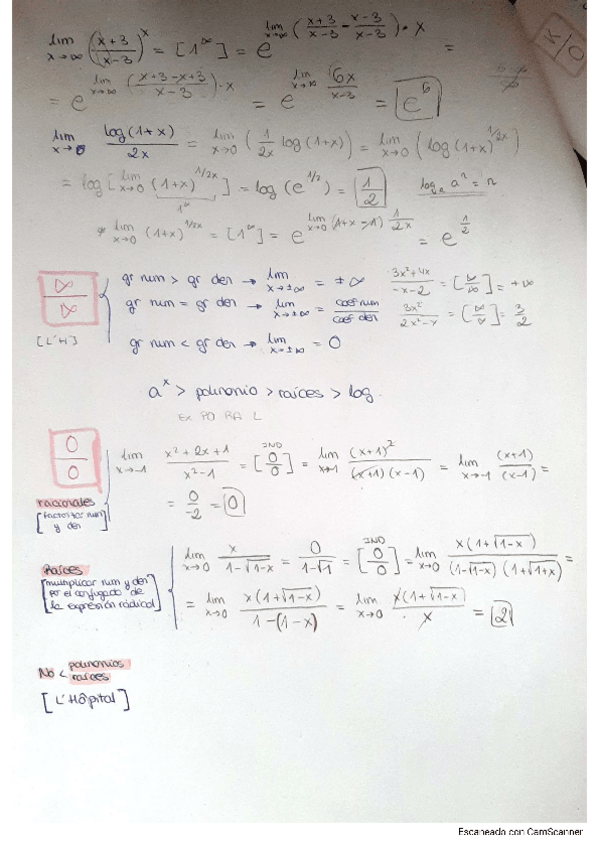 lim x→∞ ((x+3)/(x-3))^x = [1^∞] = e^(lim x→∞ ((x+3)/(x-3) - (x-3)/(x-3)) · x) =
= e^(lim x→∞ ((x+3-x+3)/(x-3)) · x) = e^(lim x→∞ 6x/(x-3)) = e^6
lim x→0 log(1+x)/2x = lim x→0 (1/2x log(1+x)) = lim x→0 (log(1+x)^(1/2x))
= log[lim x→0 (1+x)^(1/2x)] = log(e^(1/2)) = 1/2 log_a a^n = n
1^∞
* lim x→0 (1+x)^(1/2x) = [1^∞] = e^(lim x→0 (1+x-1) 1/2x) = e^(1/2)
∞/∞
[L'H]
gr num > gr den → lim x→±∞ = ±∞ (3x²+4x)/(-x-2) = [∞/∞] = +∞
gr num = gr den → lim x→±∞ = coef num/coef den 3x²/(2x²-x) = [∞/∞] = 3/2
gr num < gr den → lim x→±∞ = 0
a^x > polinomio > raíces > log.
EX PO RA L
0/0
lim x→-1 (x²+2x+1)/(x²-1) = IND [0/0] = lim x→-1 (x+1)²/((x+1)(x-1)) = lim x→-1 (x+1)/(x-1) =
= 0/-2 = 0
racionales
[factorizar num
y den
Raíces
[multiplicar num y den
por el conjugado de
la expresión radical]
lim x→0 x/(1-√(1-x)) = 0/(1-√1) = IND [0/0] = lim x→0 x(1+√(1-x))/((1-√(1-x))(1+√(1+x))) =
= lim x→0 x(1+√(1-x))/(1-(1-x)) = lim x→0 x(1+√(1-x))/x = 2
No < polinomios
raíces
[L'Hôpital]
Escaneado con CamScanner